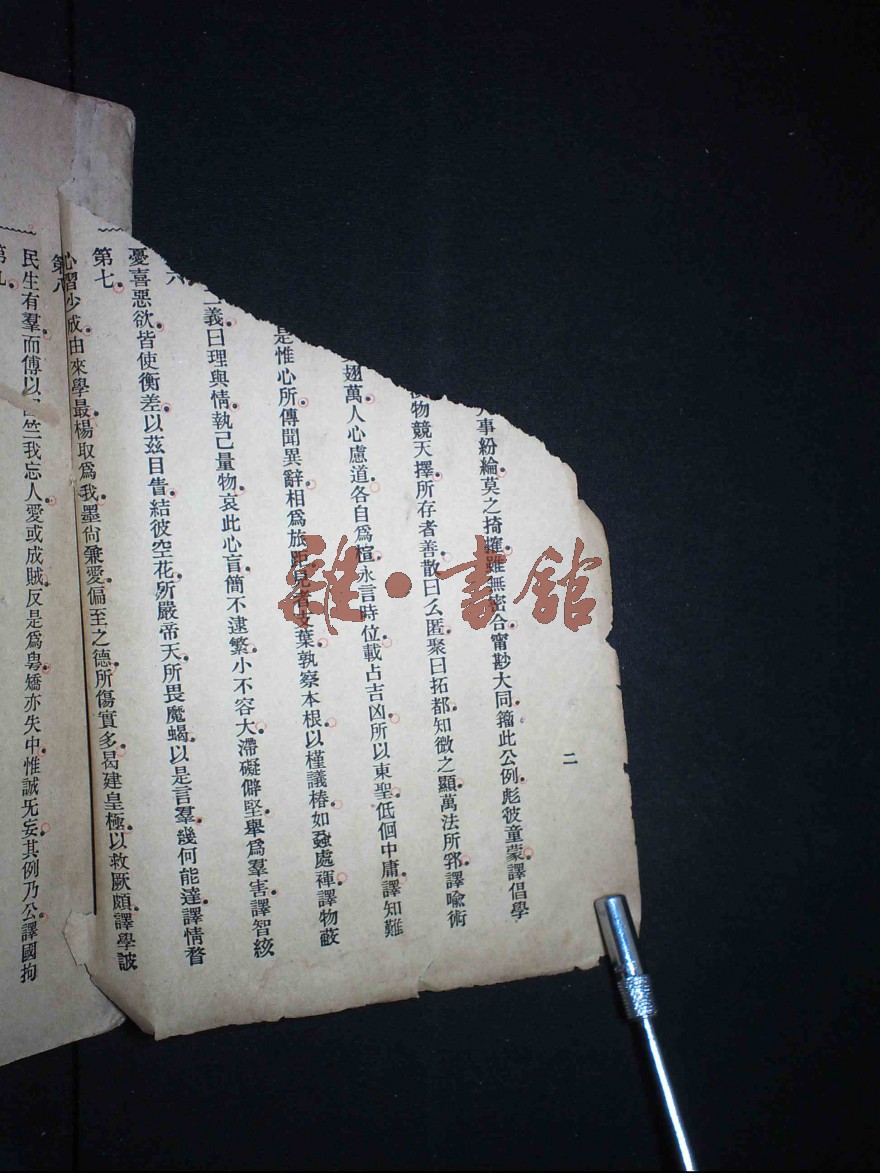 二
人事紛綸莫之掎摭雖無密合甯尠大同籀此公例彪彼童蒙譯倡學
物競天擇所存者善散曰么匿聚曰拓都知微之顯萬法所郛譯喻術
翅萬人心慮道各自爲楦永言時位載占吉凶所以東聖低徊中庸譯知難
是惟心所傳聞異辭相爲旅距見者支葉孰察本根以槿議椿如蝨處褌譯物蔽
二義曰理與情執己量物哀此心盲簡不逮繁小不容大滯礙僻堅舉爲羣害譯智絯
六
憂喜惡欲皆使衡差以茲目眚結彼空花所嚴帝天所畏魔蝎以是言羣幾何能達譯情瞀
第七
心習少成由來學最楊取爲我墨尙兼愛偏至之德所傷實多曷建皇極以救厥頗譯學詖
第八
民生有羣而傅以竺我忘人愛或成賊反是爲粵矯亦失中惟誠无妄其例乃公譯國拘
第九
雜·書館